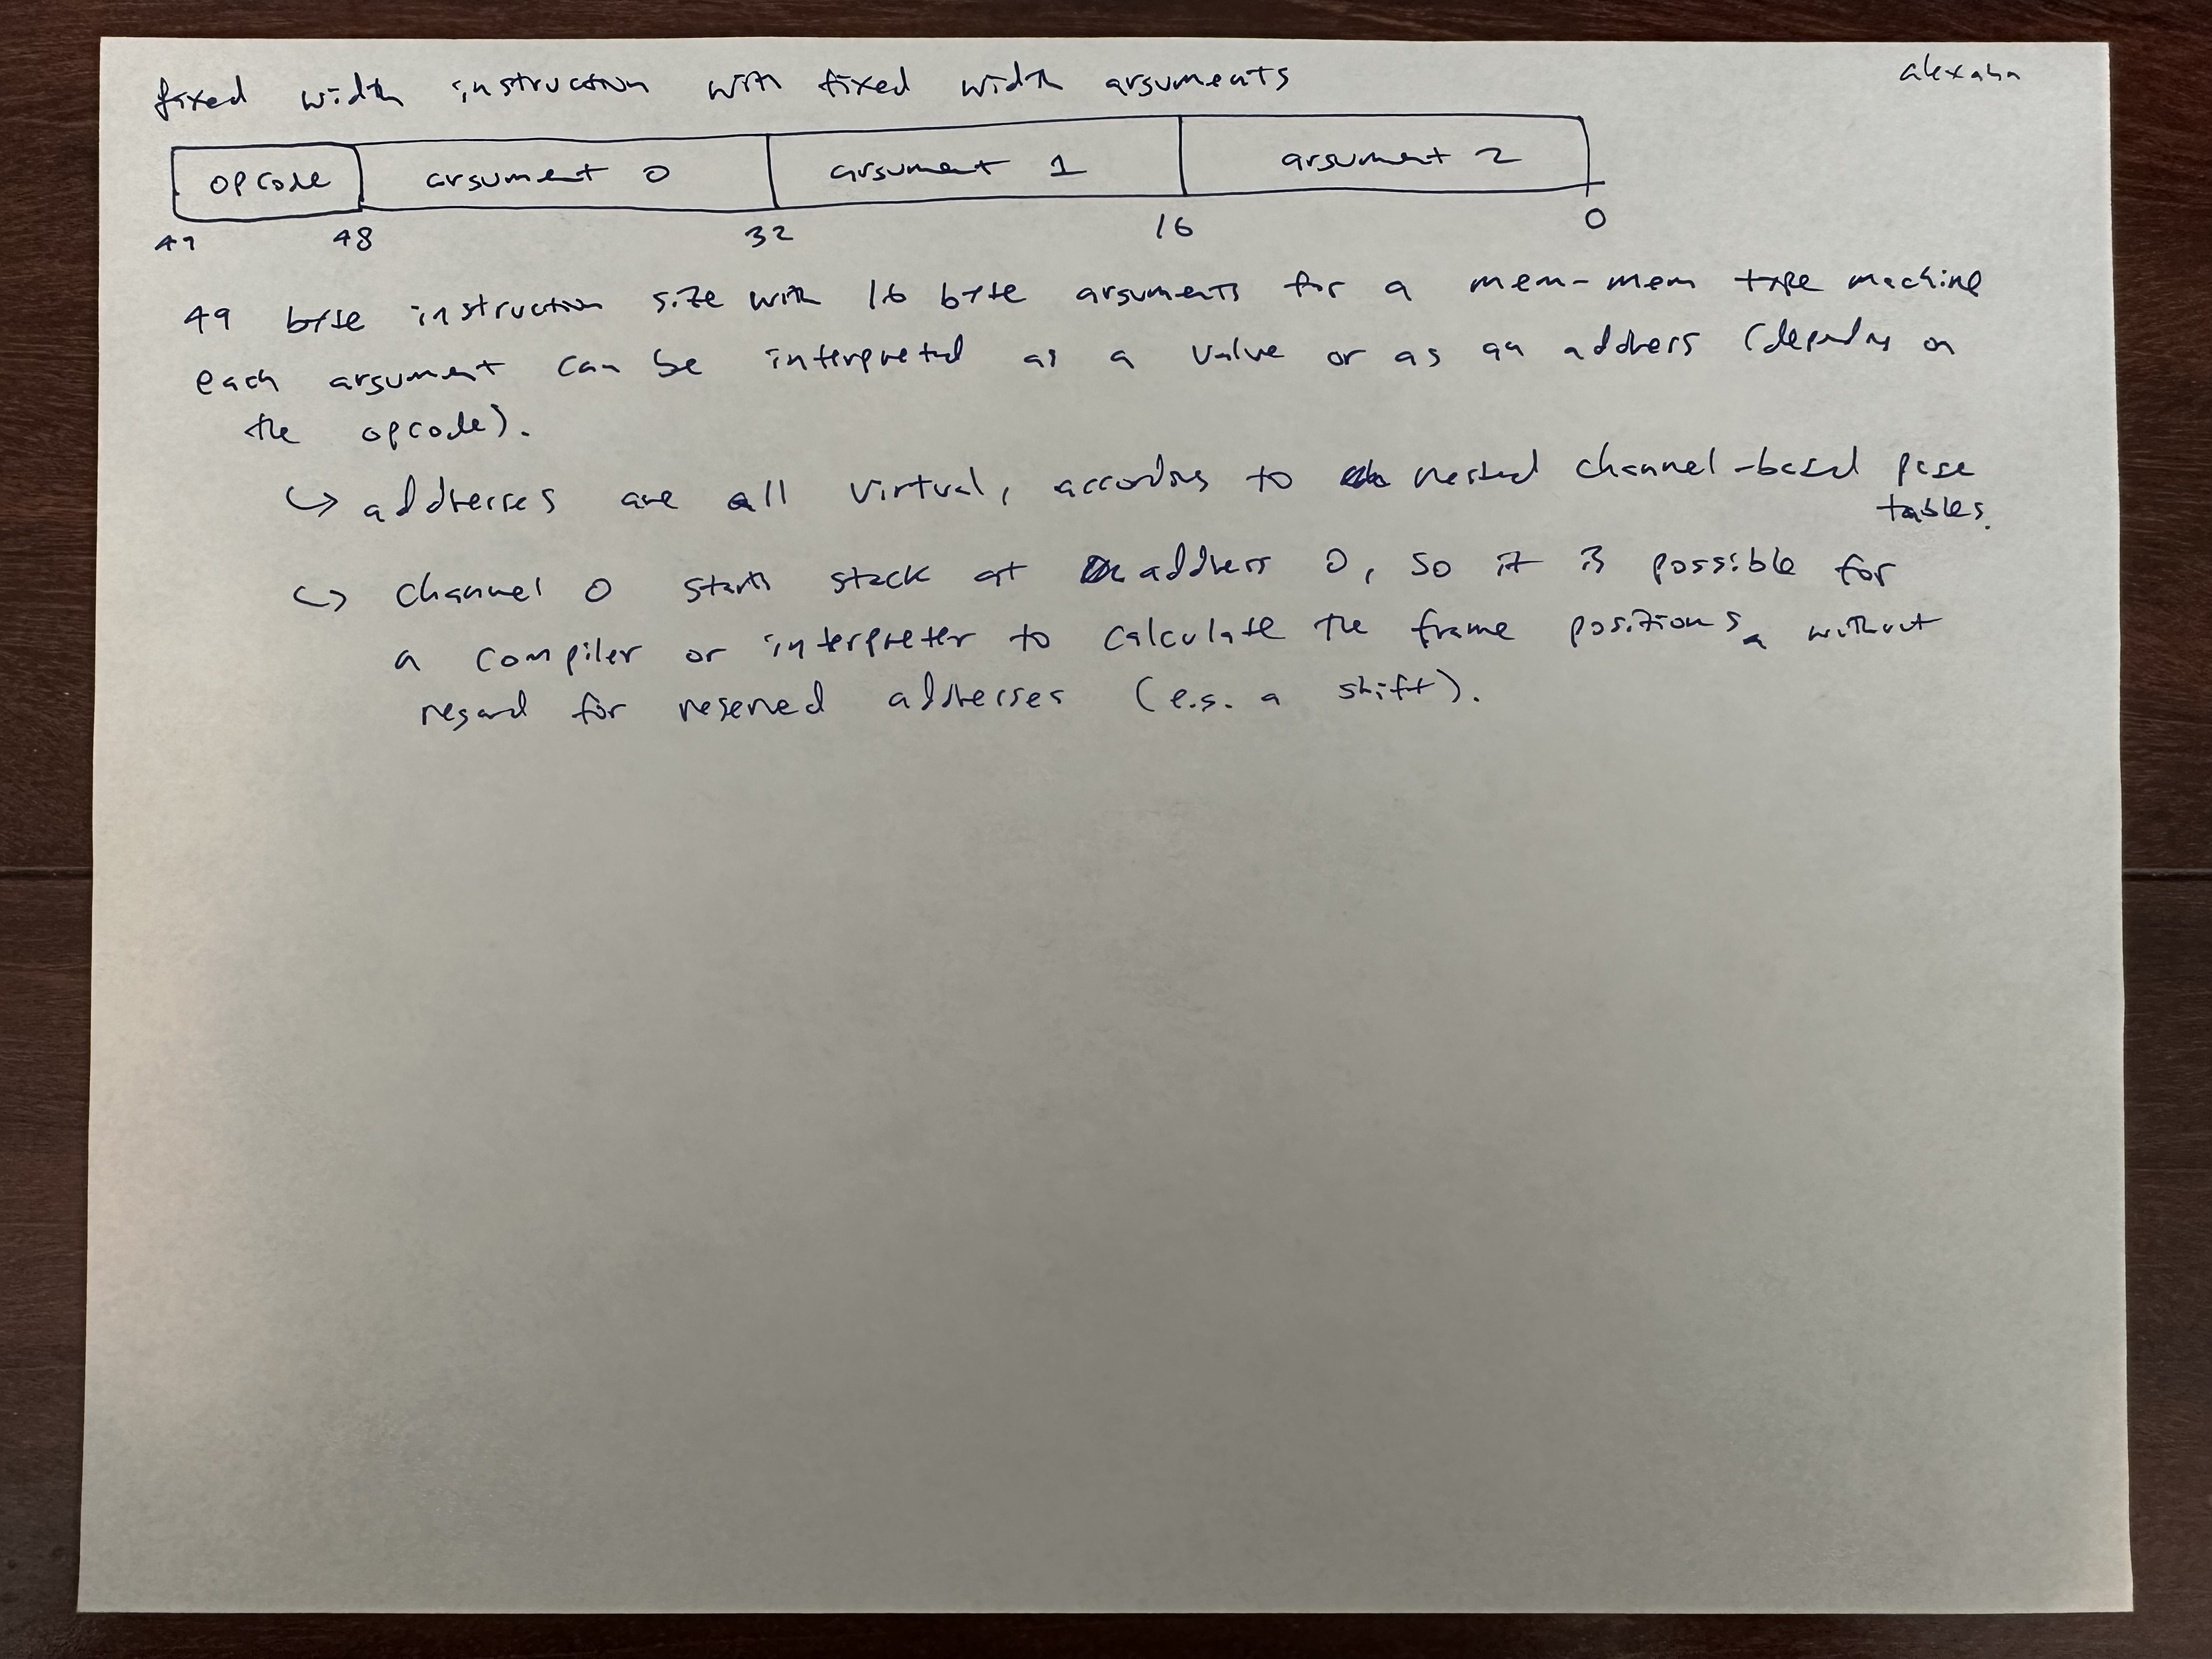 fixed width instruction with fixed width arguments
alexaha
opcode argument 0 argument 1 argument 2
49 48 32 16 0
49 byte instruction size with 16 byte arguments for a mem-mem type machine
each argument can be interpreted as a value or as an address (depends on
the opcode).
↪ addresses are all virtual, according to nested channel-based page
tables.
↪ channel 0 starts stack at address 0, so it is possible for
a compiler or interpreter to calculate the frame positions without
regard for reserved addresses (e.g. a shift).